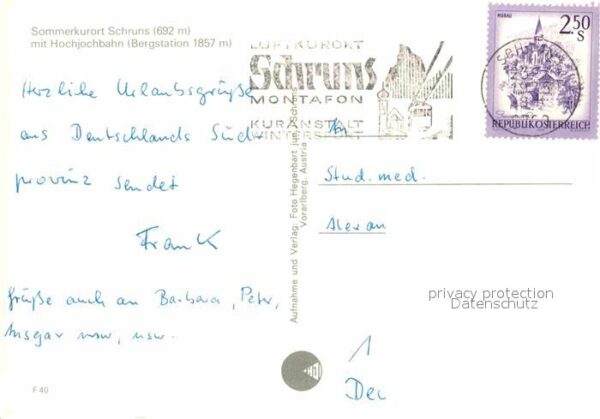 Sommerkurort Schruns (692 m)
mit Hochjochbahn (Bergstation 1857 m)
Herzliche Urlaubsgrüße
aus Deutschlands Süd
provinz sendet
Frank
Grüße auch an Barbara, Peter,
Ansgar usw, usw.
F 40
LUFTKURORT
Schruns
MONTAFON
KURANSTALT
WINTERSPORT
Aufnahme und Verlag: Foto Hegenbart jun.
Vorarlberg, Austria
MURAU
2.50
S
REPUBLIK ÖSTERREICH
An
Stud. med.
Alexan
privacy protection
Datenschutz
1